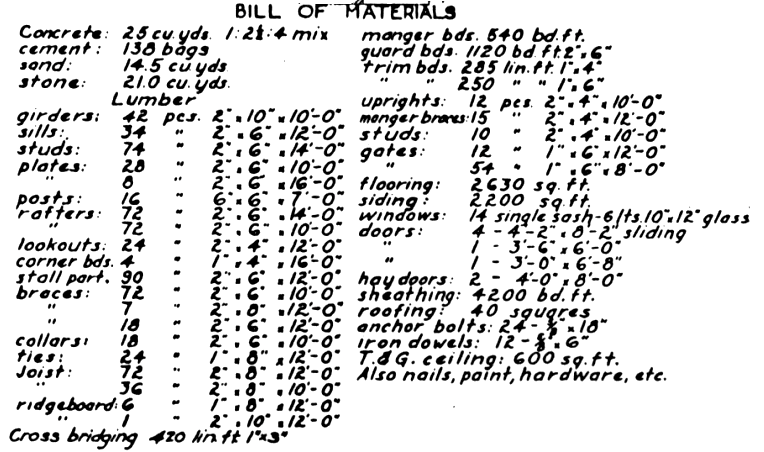 BILL OF MATERIALS
Concrete: 25 cu.yds. 1:2½:4 mix
cement: 138 bags
sand: 14.5 cu.yds.
stone: 21.0 cu.yds.
Lumber
girders: 42 pcs. 2"x10"x10'-0"
sills: 34 " 2"x6"x12'-0"
studs: 74 " 2"x6"x14'-0"
plates: 28 " 2"x6"x10'-0"
" 8 " 2"x6"x16'-0"
posts: 16 " 6"x6"x7'-0"
rafters: 72 " 2"x6"x14'-0"
" 72 " 2"x6"x10'-0"
lookouts: 24 " 2"x4"x12'-0"
corner bds. 4 " 1"x4"x16'-0"
stall part. 90 " 2"x6"x12'-0"
braces: 72 " 2"x6"x10'-0"
" 7 " 2"x8"x12'-0"
" 18 " 2"x6"x12'-0"
collars: 18 " 2"x6"x10'-0"
ties: 24 " 1"x8"x12'-0"
Joist: 72 " 2"x8"x12'-0"
" 36 " 2"x8"x10'-0"
ridgeboard: 6 " 1"x8"x12'-0"
" 1 " 2"x10"x12'-0"
Cross bridging 420 lin.ft 1"x3"
manger bds. 540 bd.ft.
guard bds. 1120 bd.ft. 2"x6"
trim bds. 285 lin.ft. 1"x4"
" " 250 " " 1"x6"
uprights: 12 pcs. 2"x4"x10'-0"
manger braces: 15 " 2"x4"x12'-0"
studs: 10 " 2"x4"x10'-0"
gates: 12 " 1"x6"x12'-0"
" 54 " 1"x6"x8'-0"
flooring: 2630 sq.ft.
siding: 2200 sq.ft.
windows: 14 single sash-6 lts. 10"x12" glass
doors: 4 - 4'-2"x8'-2" sliding
" 1 - 3'-6"x6'-0"
" 1 - 3'-0"x6'-8"
hay doors: 2 - 4'-0"x8'-0"
sheathing: 4200 bd.ft.
roofing: 40 squares
anchor bolts: 24- x18"
iron dowels: 12- x6"
T.&G. ceiling: 600 sq.ft.
Also nails, paint, hardware, etc.